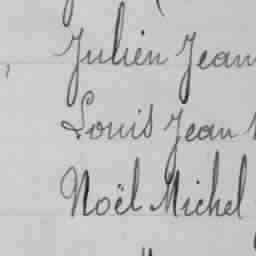 Julien Jean
Louis Jean
Noël Michel